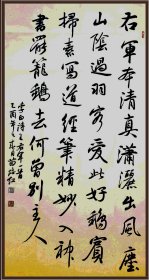 右軍本清真瀟灑出風塵
山陰過羽客愛此好鵝賓
掃素寫道經筆精妙入神
書罷籠鵝去何曾別主人
李白詩王右軍一首